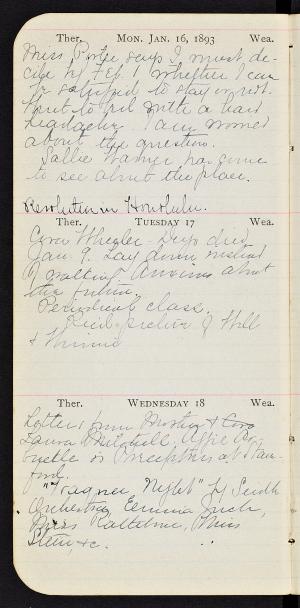 Ther. Mon. Jan. 16, 1893 Wea.
Miss Porter says I must de-
cide by Feb. 1 whether I can
be satisfied to stay or not.
Went to bed with a hard
headache. I am worried
about the question.
Sallie Warner has come
to see about the place.
Revolution in Honolulu.
Ther. Tuesday 17 Wea.
Cora Wheeler died
Jan. 9. Lay down instead
of walking. Anxious about
the future.
Periodical class.
of Will
& Minnie
Ther. Wednesday 18 Wea.
Letters from Martha & Cora
Laura Mitchell.
is Preceptress at Stan-
ford.
"Wagner Night" by Seidl
Orchestra, Emma Juch,
Miss
Stein, &c.